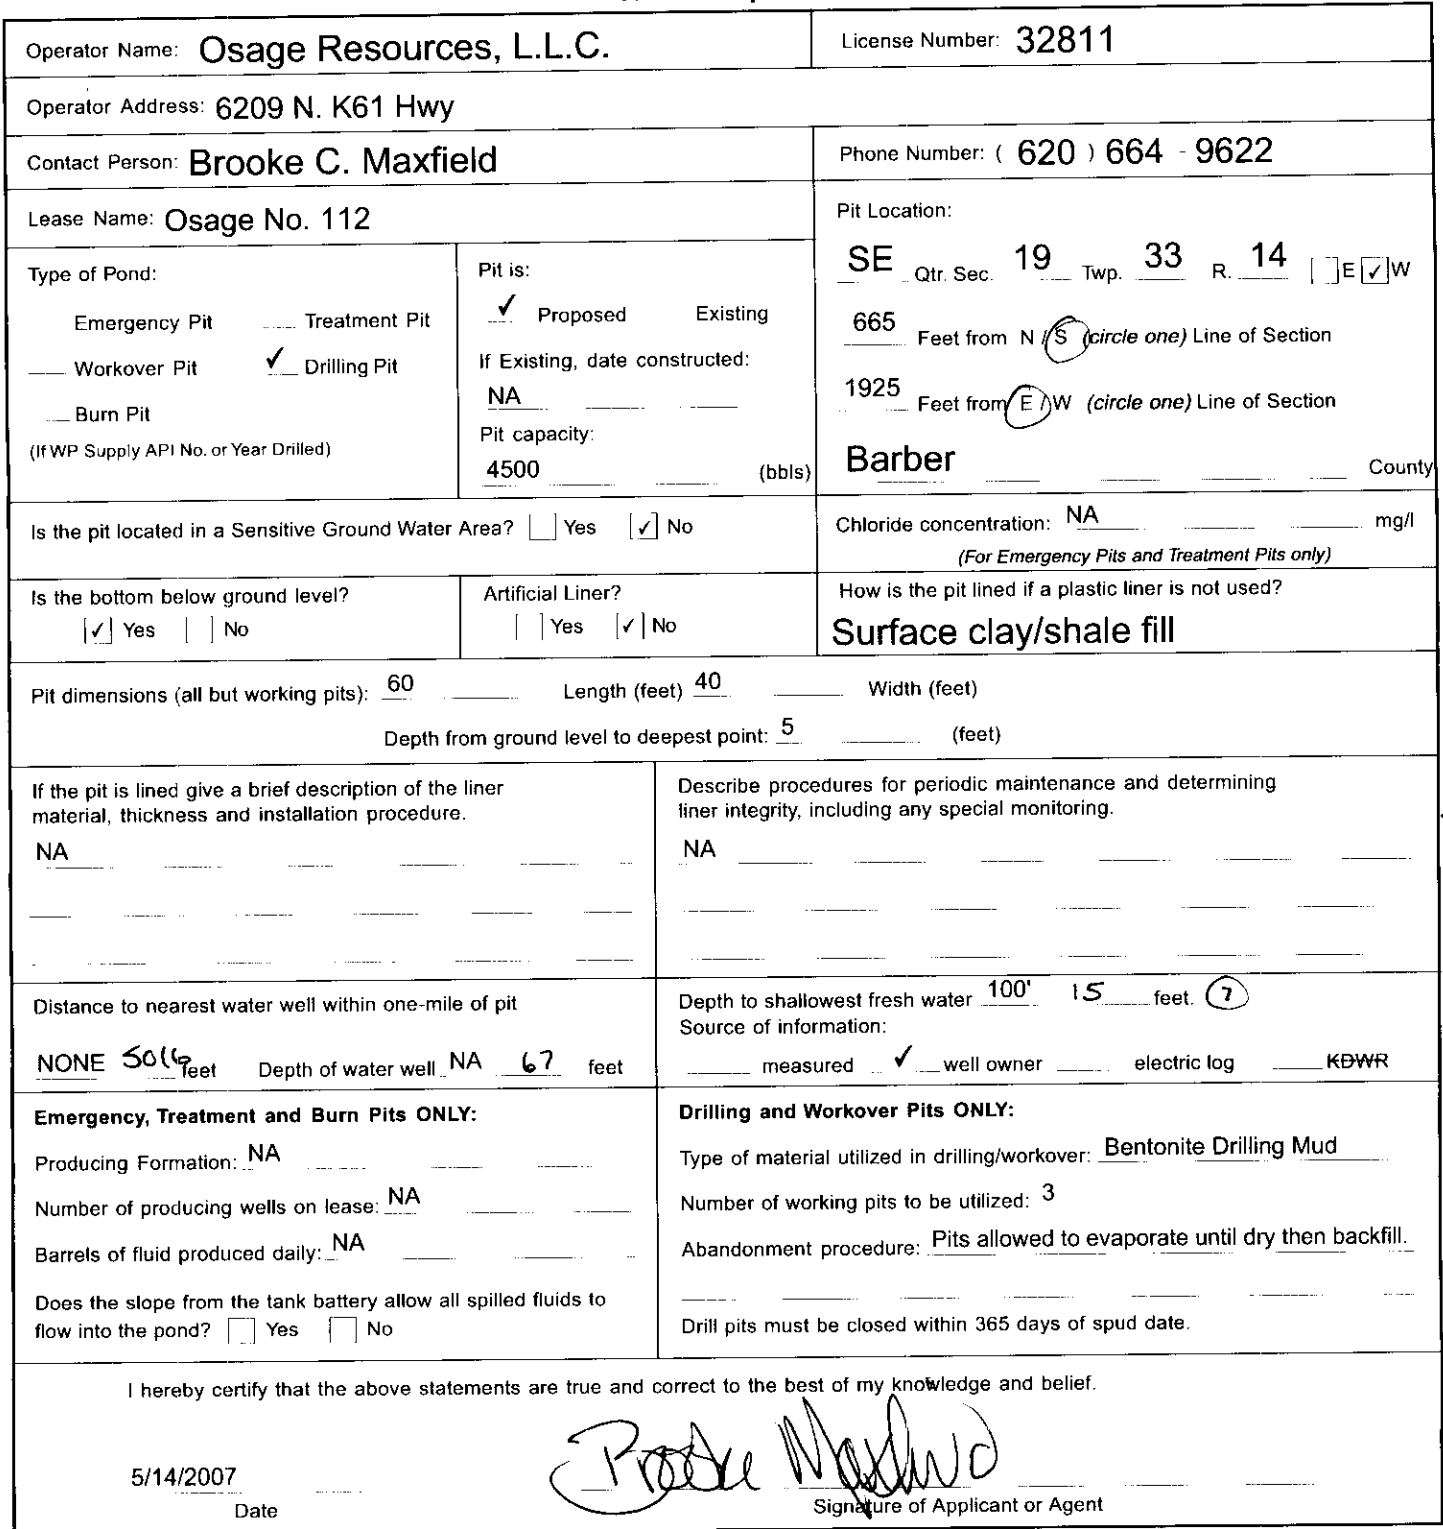 Operator Name: Osage Resources, L.L.C.
License Number: 32811
Operator Address: 6209 N. K61 Hwy
Contact Person: Brooke C. Maxfield
Phone Number: ( 620 ) 664 - 9622
Lease Name: Osage No. 112
Pit Location:
SE Qtr. Sec. 19 Twp. 33 R. 14 [ ] E [✓] W
665 Feet from N / S (circle one) Line of Section
1925 Feet from E / W (circle one) Line of Section
Barber County
Type of Pond:
Emergency Pit Treatment Pit
Workover Pit ✓ Drilling Pit
Burn Pit
(If WP Supply API No. or Year Drilled)
Pit is:
✓ Proposed Existing
If Existing, date constructed:
NA
Pit capacity:
4500 (bbls)
Is the pit located in a Sensitive Ground Water Area? [ ] Yes [✓] No
Chloride concentration: NA mg/l
(For Emergency Pits and Treatment Pits only)
Is the bottom below ground level?
[✓] Yes [ ] No
Artificial Liner?
[ ] Yes [✓] No
How is the pit lined if a plastic liner is not used?
Surface clay/shale fill
Pit dimensions (all but working pits): 60 Length (feet) 40 Width (feet)
Depth from ground level to deepest point: 5 (feet)
If the pit is lined give a brief description of the liner
material, thickness and installation procedure.
NA
Describe procedures for periodic maintenance and determining
liner integrity, including any special monitoring.
NA
Distance to nearest water well within one-mile of pit
NONE 5016 feet Depth of water well NA 67 feet
Depth to shallowest fresh water 100' 15 feet. 7
Source of information:
measured ✓ well owner electric log KDWR
Emergency, Treatment and Burn Pits ONLY:
Producing Formation: NA
Number of producing wells on lease: NA
Barrels of fluid produced daily: NA
Does the slope from the tank battery allow all spilled fluids to
flow into the pond? [ ] Yes [ ] No
Drilling and Workover Pits ONLY:
Type of material utilized in drilling/workover: Bentonite Drilling Mud
Number of working pits to be utilized: 3
Abandonment procedure: Pits allowed to evaporate until dry then backfill.
Drill pits must be closed within 365 days of spud date.
I hereby certify that the above statements are true and correct to the best of my knowledge and belief.
5/14/2007
Date
Brooke Maxfield
Signature of Applicant or Agent